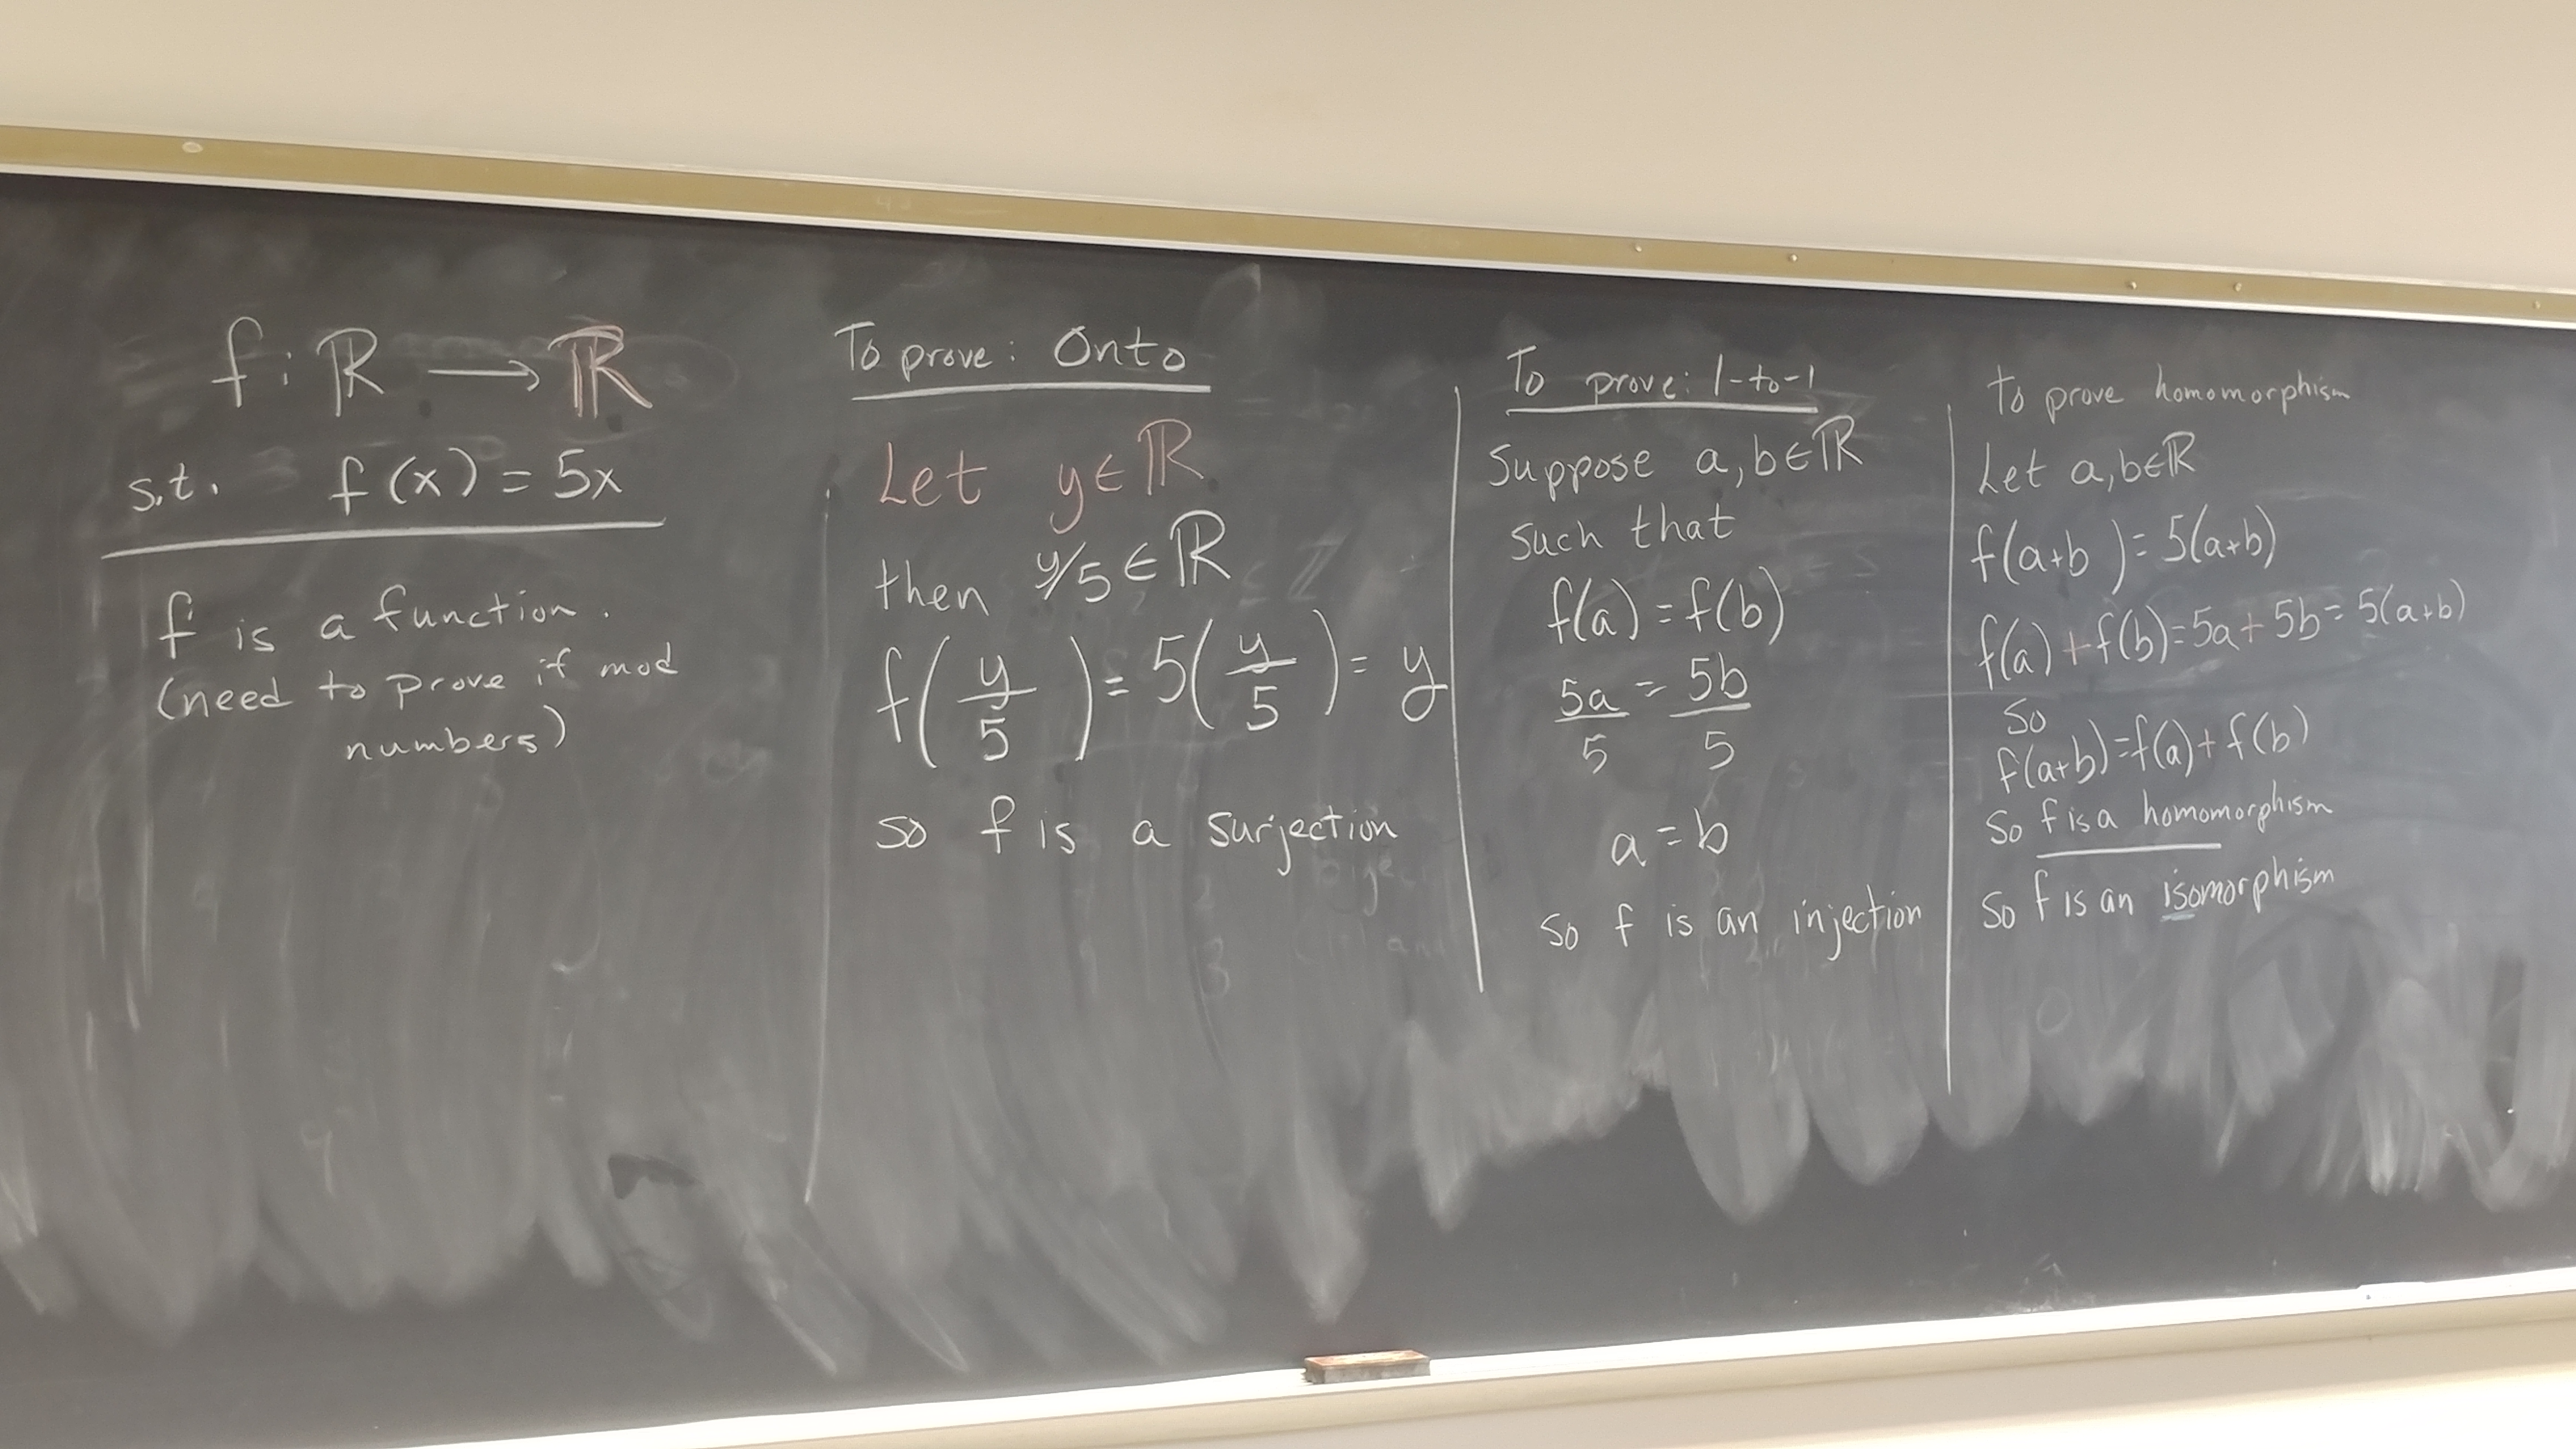 f: ℝ ⟶ ℝ
s.t. f(x) = 5x
f is a function.
(need to prove if mod
numbers)
To prove: Onto
Let y∈ℝ.
then y/5 ∈ ℝ
f(y/5) = 5(y/5) = y
so f is a surjection
To prove: 1-to-1
Suppose a,b∈ℝ
such that
f(a) = f(b)
5a/5 = 5b/5
a = b
so f is an injection
to prove homomorphism
Let a,b∈ℝ
f(a+b) = 5(a+b)
f(a) + f(b) = 5a + 5b = 5(a+b)
So
f(a+b) = f(a) + f(b)
So f is a homomorphism
So f is an isomorphism